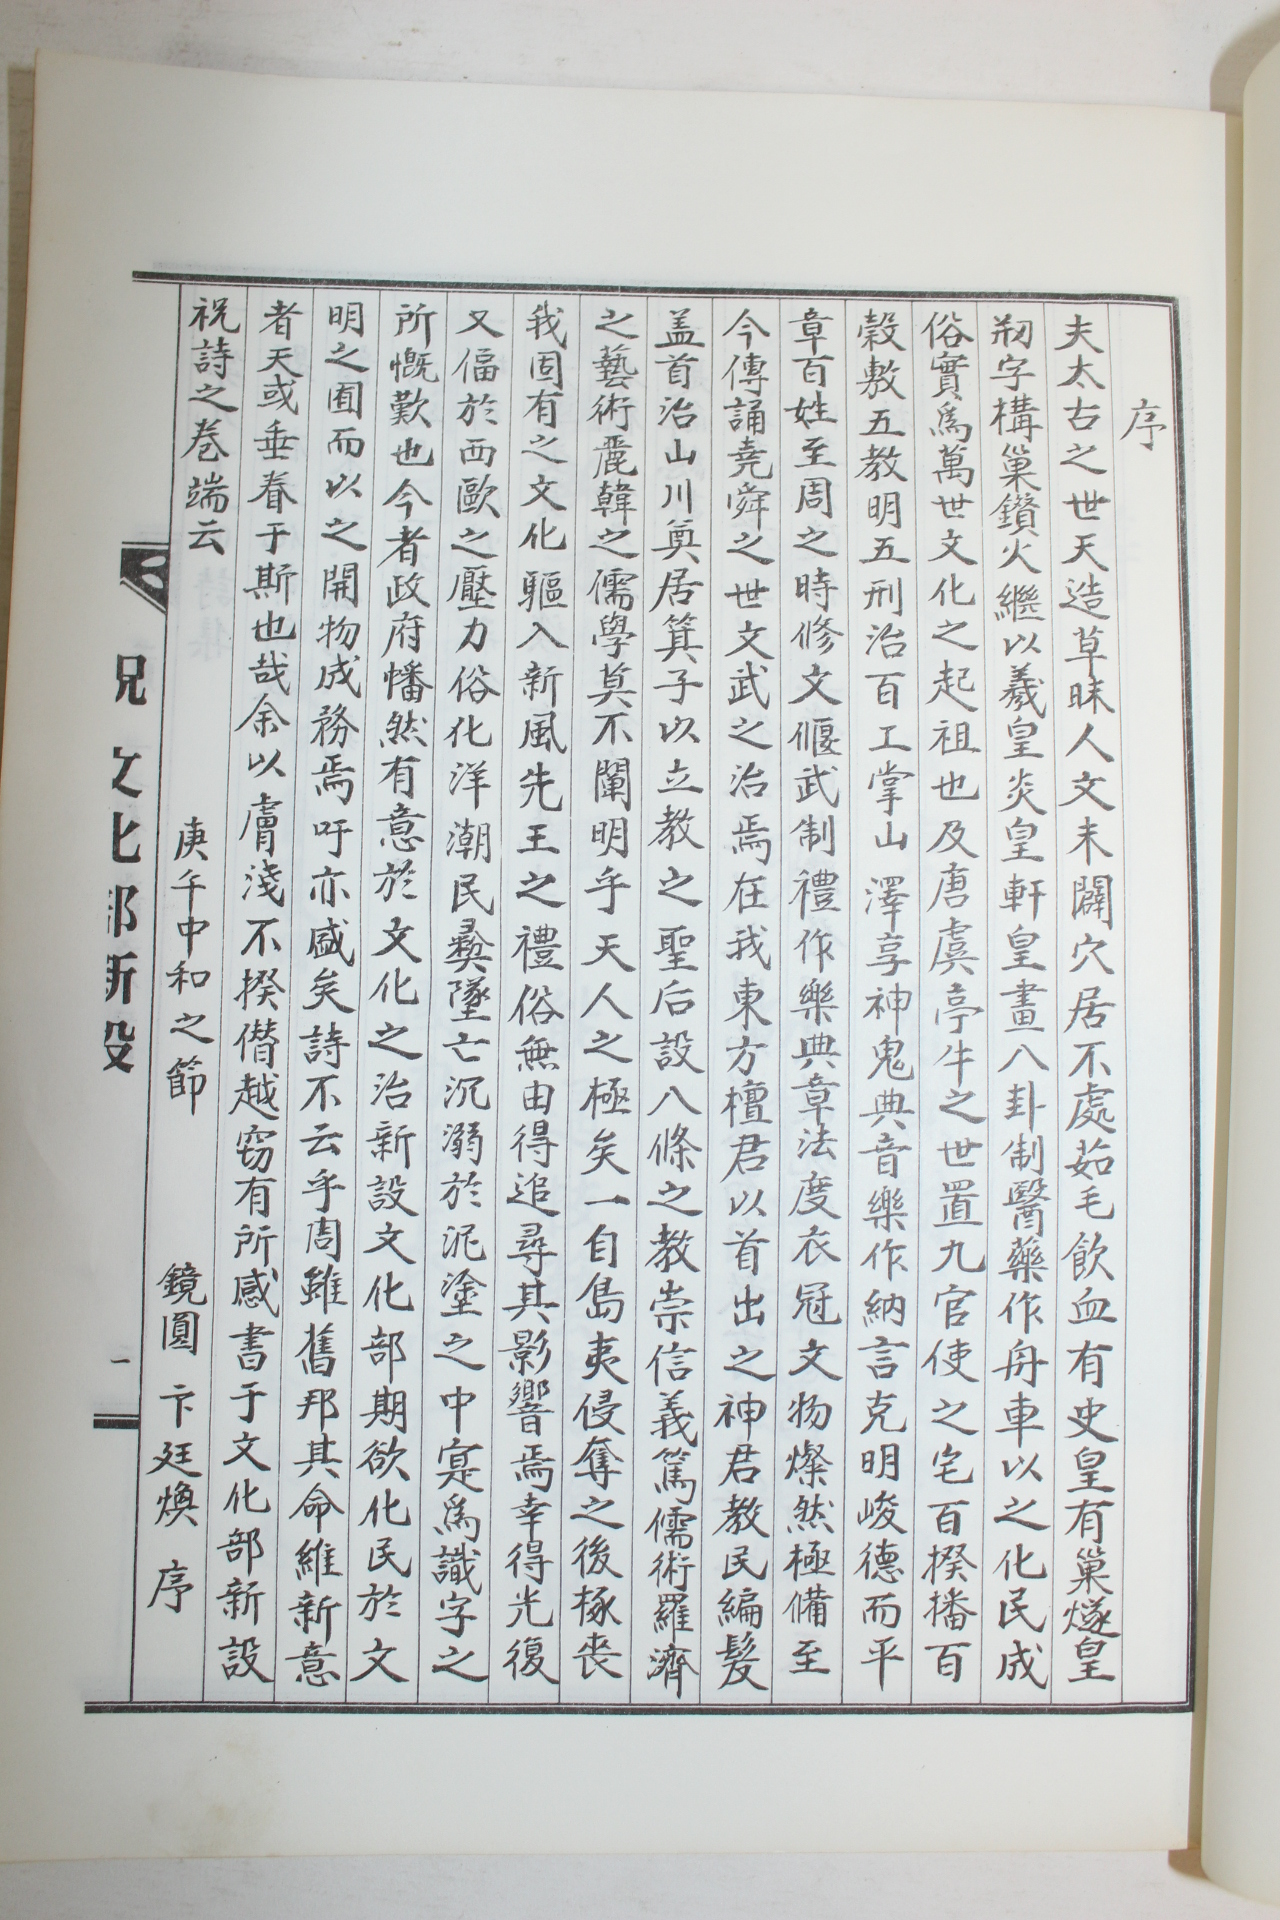 序
夫太古之世天造草昧人文未闢穴居不處茹毛飮血有史皇有巢燧皇
剏字構巢鑽火繼以羲皇炎皇軒皇畫八卦制醫藥作舟車以之化民成
俗實爲萬世文化之起祖也及唐虞亭牛之世置九官使之宅百揆播百
穀敷五敎明五刑治百工掌山澤享神鬼典音樂作納言克明峻德而平
章百姓至周之時修文偃武制禮作樂典章法度衣冠文物燦然極備至
今傳誦堯舜之世文武之治焉在我東方檀君以首出之神君敎民編髮
盖首治山川奠居箕子以立敎之聖后設八條之敎崇信義篤儒術羅濟
之藝術麗韓之儒學莫不闡明乎天人之極矣一自島夷侵奪之後椓喪
我固有之文化驅入新風先王之禮俗無由得追尋其影響焉幸得光復
又偪於西歐之壓力俗化洋潮民彛墜亡沉溺於泥塗之中寔爲識字之
所慨歎也今者政府幡然有意於文化之治新設文化部期欲化民於文
明之囿而以之開物成務焉吁亦盛矣詩不云乎周雖舊邦其命維新意
者天或垂眷于斯也哉余以膚淺不揆僭越窃有所感書于文化部新設
祝詩之卷端云
庚午中和之節 鏡圓 卞廷煥 序
祝文化部新設
一